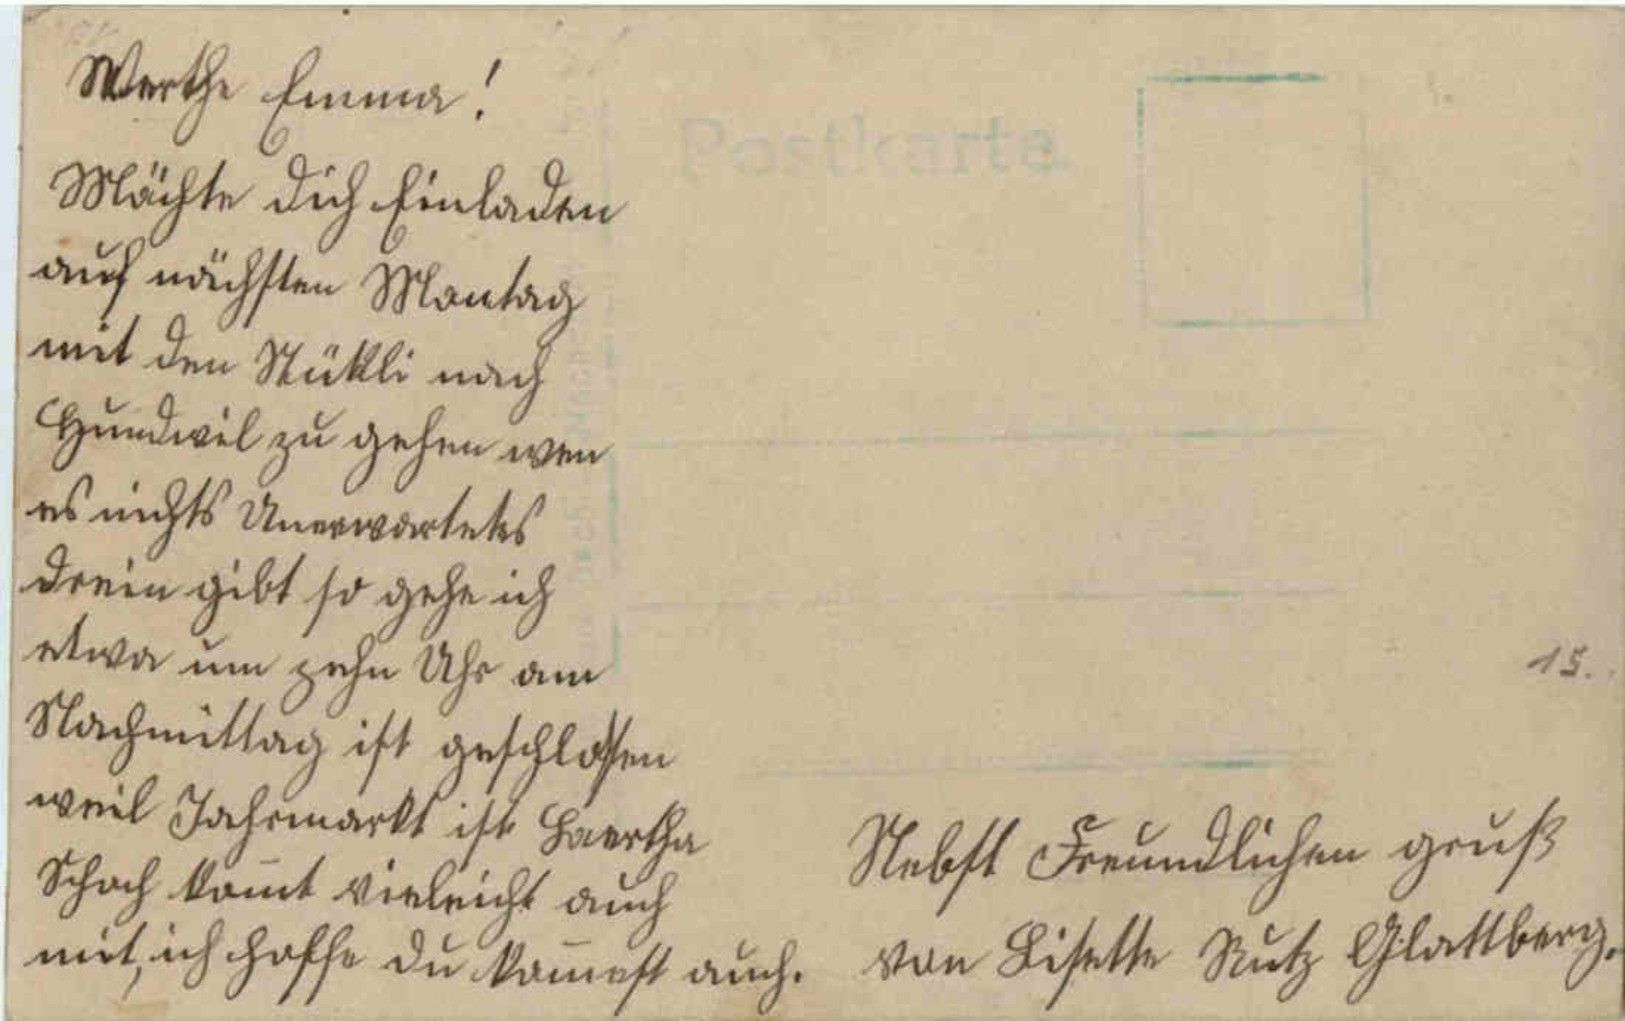 Werthe Emma!
Möchte dich Einladen
auf nächsten Montag
mit den Stükli nach
Hundwil zu gehen wen
es nichts Unerwartetes
drein gibt so gehe ich
etwa um zehn Uhr am
Nachmittag ist geschlossen
weil Jahrmarkt ist Baertha
Schoch kom̄t vieleicht auch
mit, ich hoffe du kom̄est auch.
Postkarte
15.
Nebst Freundlichen gruß
von Lisette Nutz Glattberg.